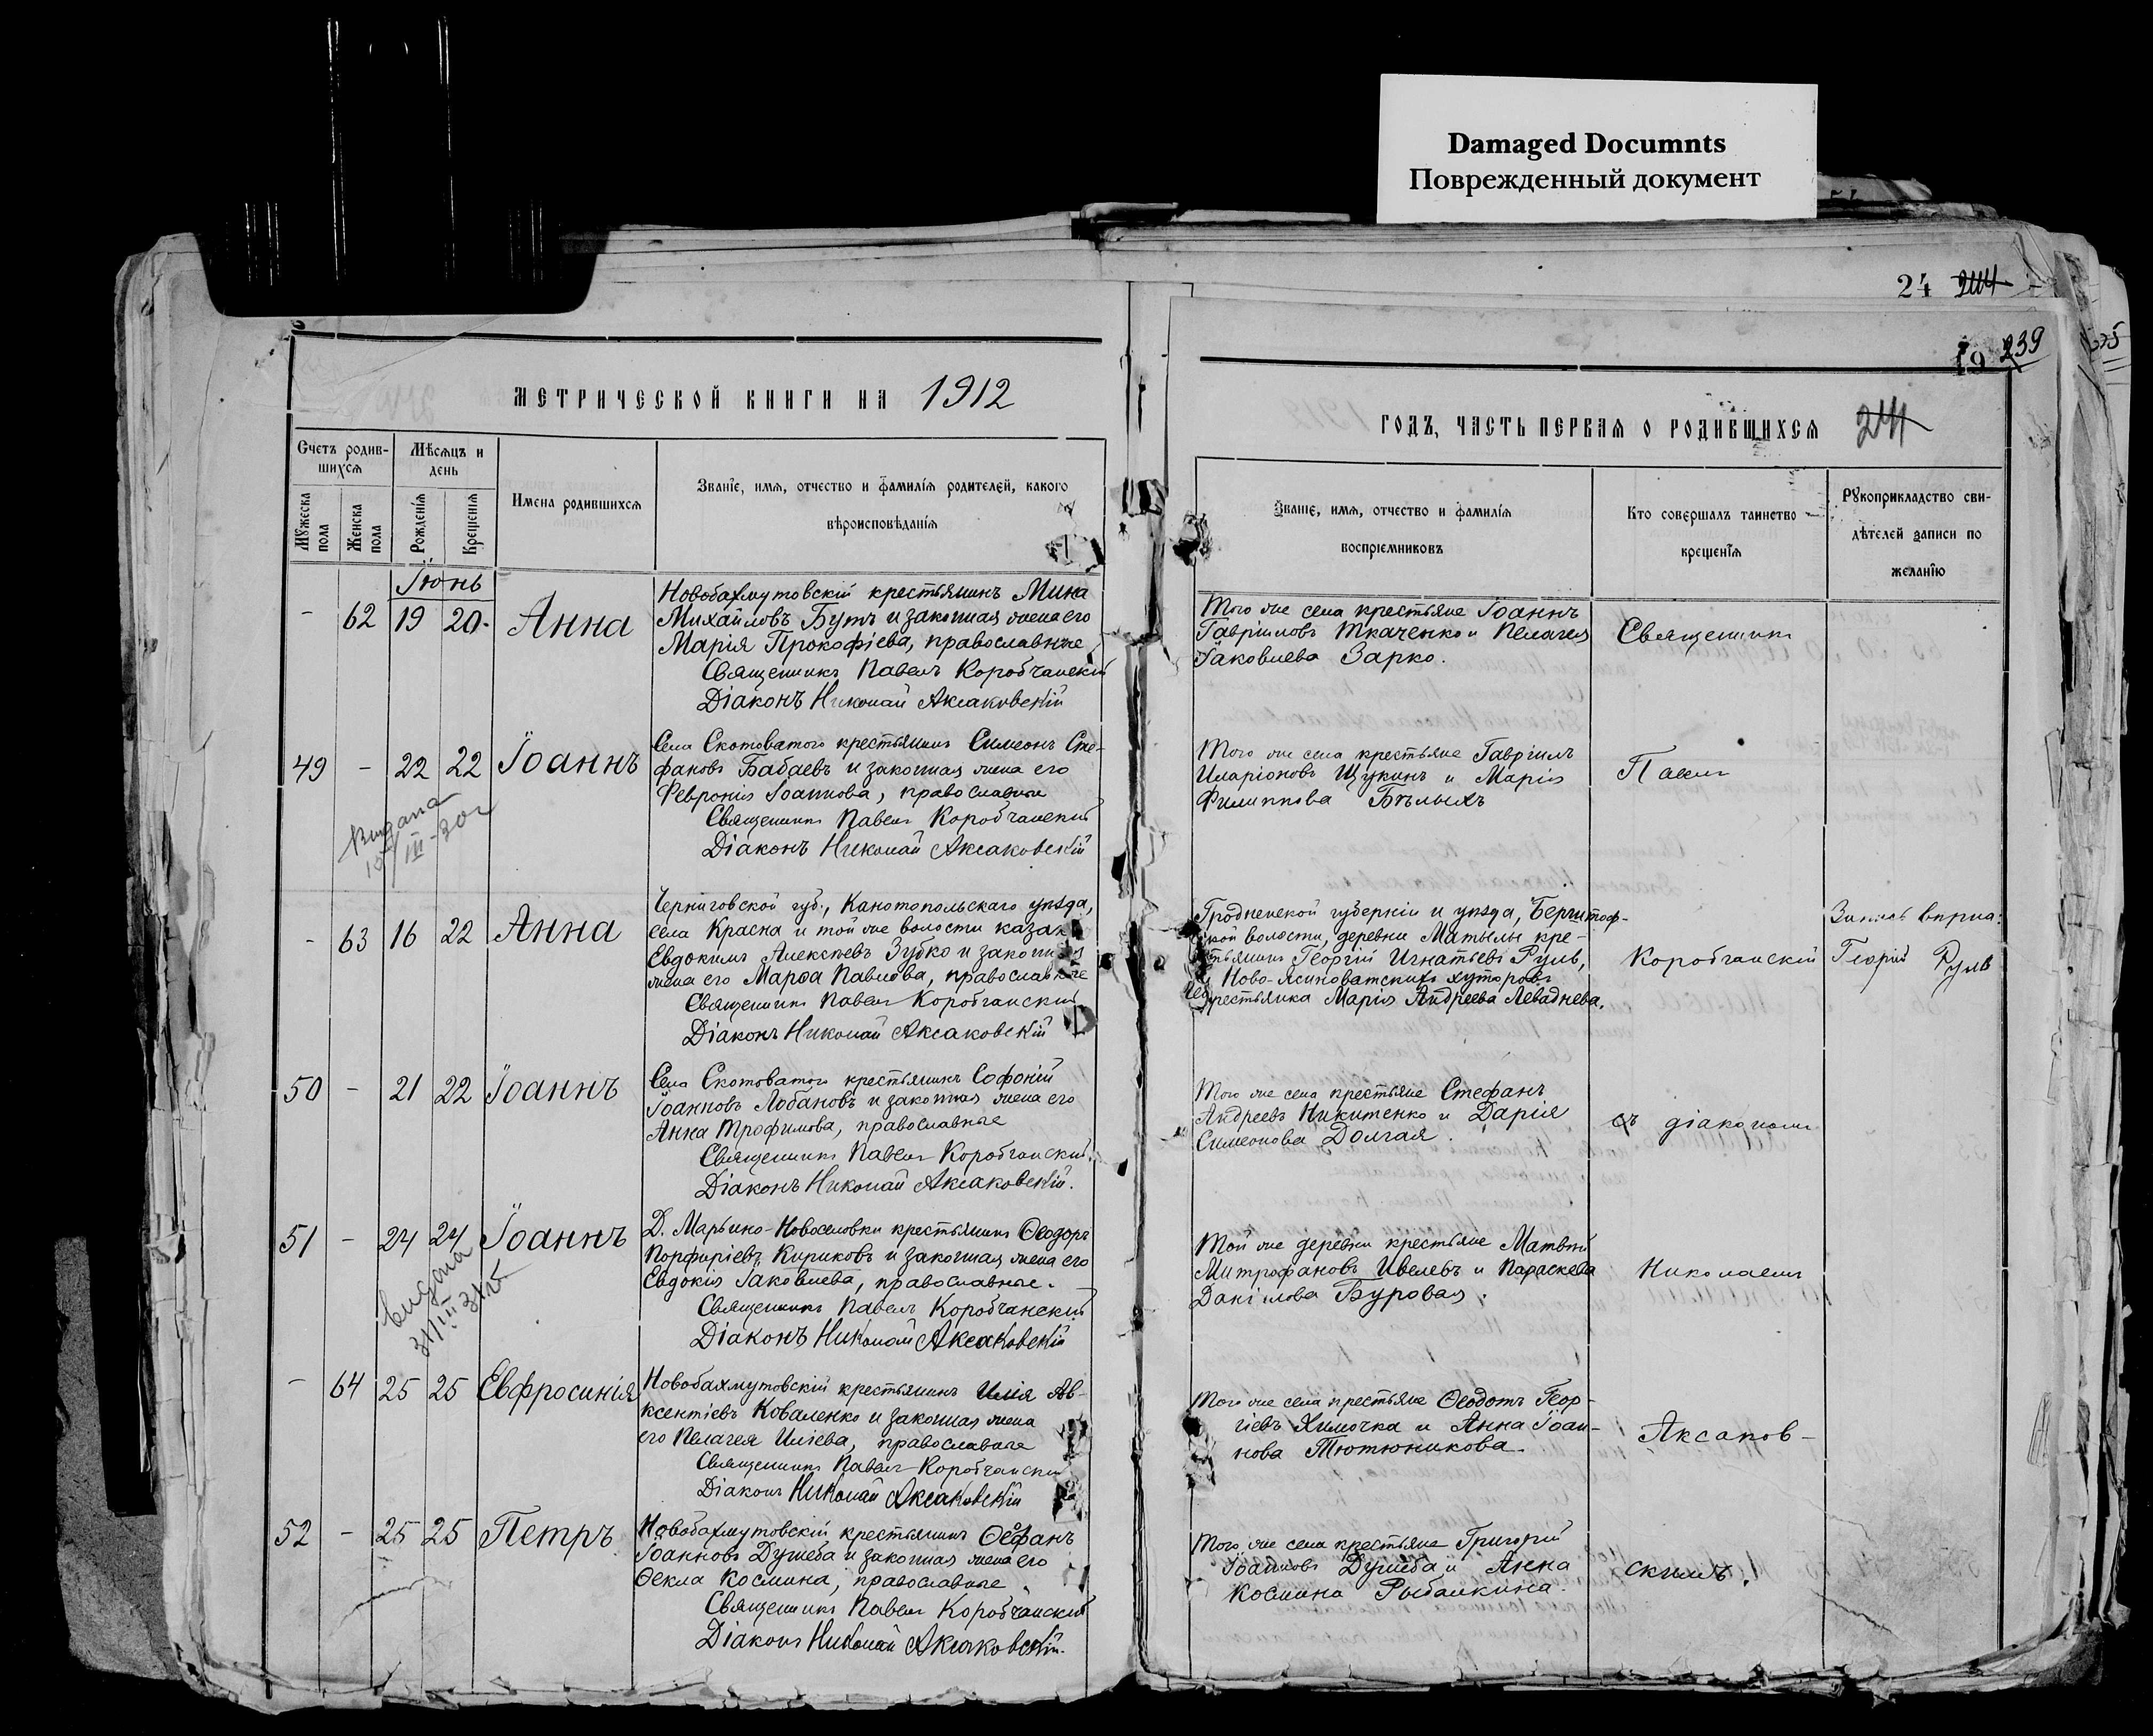 Damaged Documnts
Поврежденный документ
24 244
19 239
235
МЕТРИЧЕСКОЙ КНИГИ НА 1912
ГОДЪ, ЧАСТЬ ПЕРВАЯ О РОДИВШИХСЯ 241
Счетъ родив-
шихся
Мѣсяцъ и
день
Мужеска
пола
Женска
пола
Рожденія
Крещенія
Имена родившихся
Званіе, имя, отчество и фамилія родителей, какого
вѣроисповѣданія
Званіе, имя, отчество и фамилія
воспріемниковъ
Кто совершалъ таинство
крещенія
Рукоприкладство сви-
дѣтелей записи по
желанію
Іюнь
- 62 19 20. Анна
Новобахмутовскій крестьянинъ Мина
Михайловъ Бутъ и законная жена его
Марія Прокофіева, православные
Священникъ Павелъ Коробчанскій
Діаконъ Николай Аксаковскій
Того же села крестьяне Іоаннъ
Гавріиловъ Ткаченко и Пелагея
Іаковлева Зарко.
Священникъ
49 - 22 22 Іоаннъ
Села Скотоватого крестьянинъ Симеонъ Сте-
фановъ Бабаевъ и законная жена его
Февронія Іоаннова, православные
Священникъ Павелъ Коробчанскій
Діаконъ Николай Аксаковскій
Того же села крестьяне Гавріилъ
Иларіоновъ Щукинъ и Марія
Филиппова Бѣлыхъ
Павелъ
Выдана
III-30г
- 63 16 22 Анна
Черниговской губ., Канотопольскаго уѣзда,
села Красна и той же волости казак
Евдокимъ Алексѣевъ Зубко и законная
жена его Марѳа Павлова, православные
Священникъ Павелъ Коробчанскій
Діаконъ Николай Аксаковскій
Гродненской губерніи и уѣзда,
ской волости, деревни Матылы кре-
стьянинъ Георгій Игнатьевъ Руль,
и Ново-Ясиноватскихъ хуторовъ
крестьянка Марія Андреева Леваднева.
Коробчанскій
Запись вѣрна:
Георгій Руль
50 - 21 22 Іоаннъ
Села Скотоватого крестьянинъ Софоній
Іоанновъ Лобановъ и законная жена его
Анна Трофимова, православные
Священникъ Павелъ Коробчанскій.
Діаконъ Николай Аксаковскій.
Того же села крестьяне Стефанъ
Андреевъ Никитенко и Дарія
Симеонова Долгая.
съ діакономъ
51 - 24 24 Іоаннъ
Д. Марьино-Новоселовки крестьянинъ Ѳеодоръ
Порфиріевъ Кириковъ и законная жена его
Евдокія Іаковлева, православные.
Священникъ Павелъ Коробчанскій
Діаконъ Николай Аксаковскій
Той же деревни крестьяне Матвѣй
Митрофановъ Ивелевъ и Параскева
Даніилова Буровая.
Николаемъ
- 64 25 25 Евфросинія
Новобахмутовскій крестьянинъ Илія Ав-
ксентіевъ Коваленко и законная жена
его Пелагея Иліева, православные
Священникъ Павелъ Коробчанскій
Діаконъ Николай Аксаковскій
Того же села крестьяне Ѳеодотъ Геор-
гіевъ Химочка и Анна Іоан-
нова Тютюникова.
Аксаков-
52 - 25 25 Петръ
Новобахмутовскій крестьянинъ Ѳеофанъ
Іоанновъ Дулеба и законная жена его
Ѳекла Космина, православные
Священникъ Павелъ Коробчанскій
Діаконъ Николай Аксаковскій.
Того же села крестьяне Григорій
Іоанновъ Дулеба и Анна
Космина Рыбалкина.
скимъ.